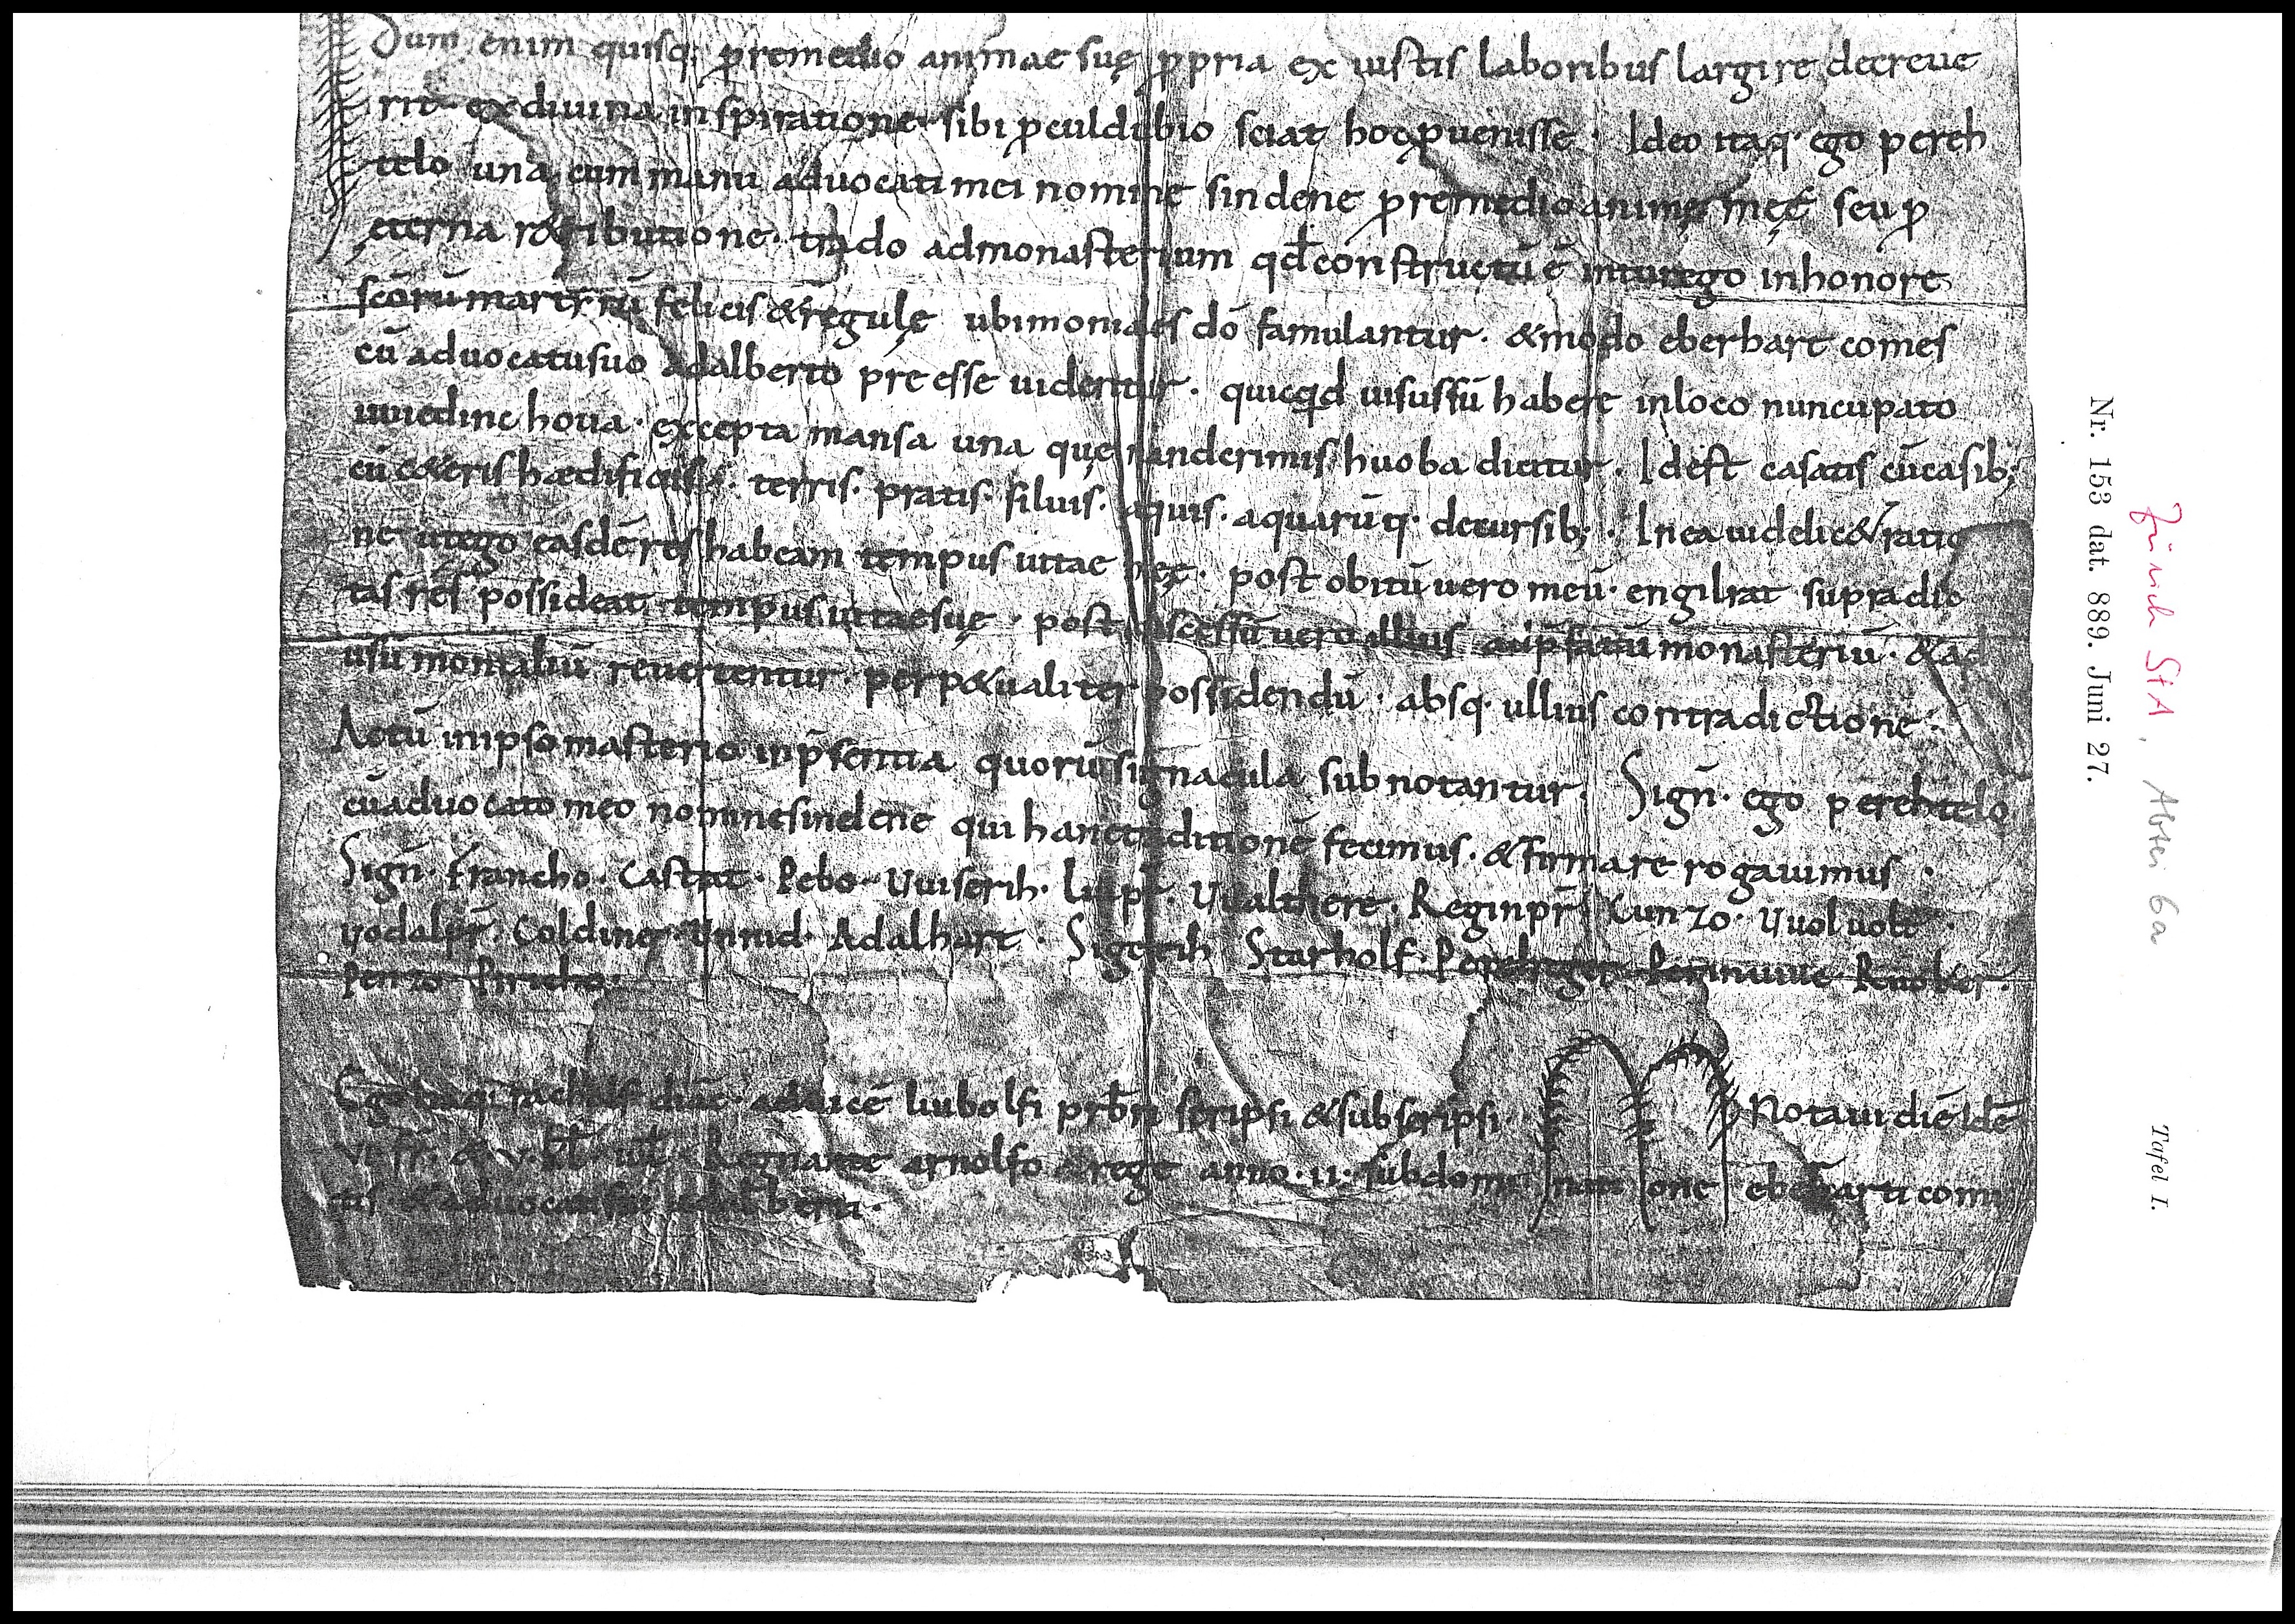 Dum enim quisq; p remedio animae suę ppria ex iustis laboribus largire decreue
rit ex divina inspiratione sibi pculdubio sciat hoc puenisse · Ideo itaq· ego pereh
telo una cum manu advocati mei nomine sindene p remedio animę męę seu p
ęterna r&ributione · trado ad monasterium qd constructū ē in turego in honore
scōrū martyrū felicis & regulę ubi moniales dō famulantur · & modo eberhart comes
cū advocatu suo Adalberto preesse videntur · quicqid visus sū habere in loco nuncupato
uuedinchova · excepta mansa una quę dicitur · Id est casatis cū casib;
cū c&eris hædificiis · terris · pratis · silvis · aquis · aquarūq· decursib; · In ea videlic& ratio
ne ut ego easdē res habeam tempus vitae męę · post obitū vero meū · engilrat supradic
tas res possideat tempus vitae suę · post discessū vero illius ad p̄fatū monasteriū · & ad
usū monialiū revertentur · perp&ualiter possidendū · absq· ullius contradictione ·
Actū in ipso masterio in p̄sentia quorū signacula subnotantur · Sign̄ · ego perehtelo
cū advocato meo nomine sindene qui hanc traditionē fecimus · & firmare rogavimus ·
Sign̄ · Francho · Castrat · Pebo · Uuiserih · Liutpr̄ · Uualthere · Reginpr̄ · Cunzo · Uuoluolt ·
Uodalpr̄ · Coldinc · Adalhart · Sigerih Starholf · Perinuuic ·
Penzo · Piricho ·
Ego itaq· diac̄ · ad vicē liubolfi prb̄ri scripsi & subscripsi · Notavi diē idē
VI fr̄ · & V · kl̄ iul̄ · Regnante arnolfo rege anno · II · sub dominatione eberharti comi
tis & advocati sui adalberti ·
Nr. 153 dat. 889. Juni 27.
Zürich StA, Abtei 6a
Tafel I.